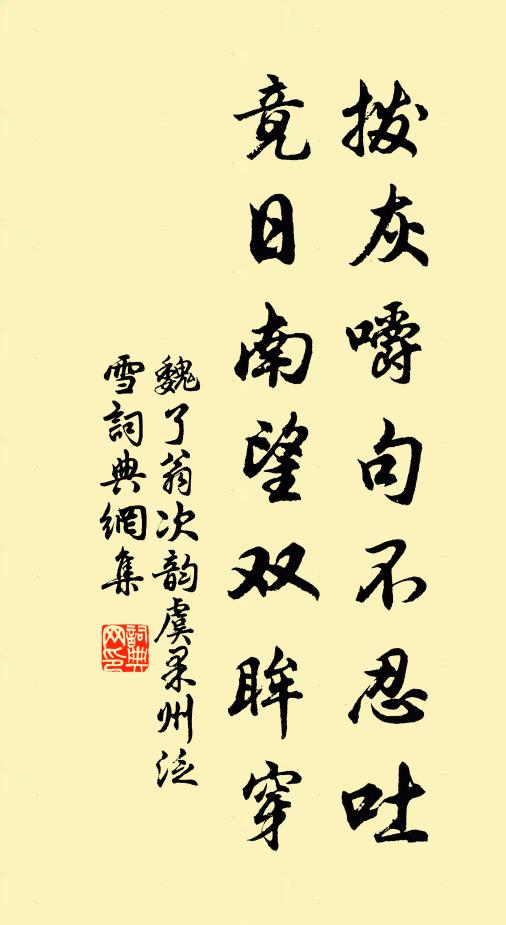 拨灰嚼句不忍吐
竟日南望双眸穿
魏了翁次韵虞果州泛
雪詞典網集
詞典
网印